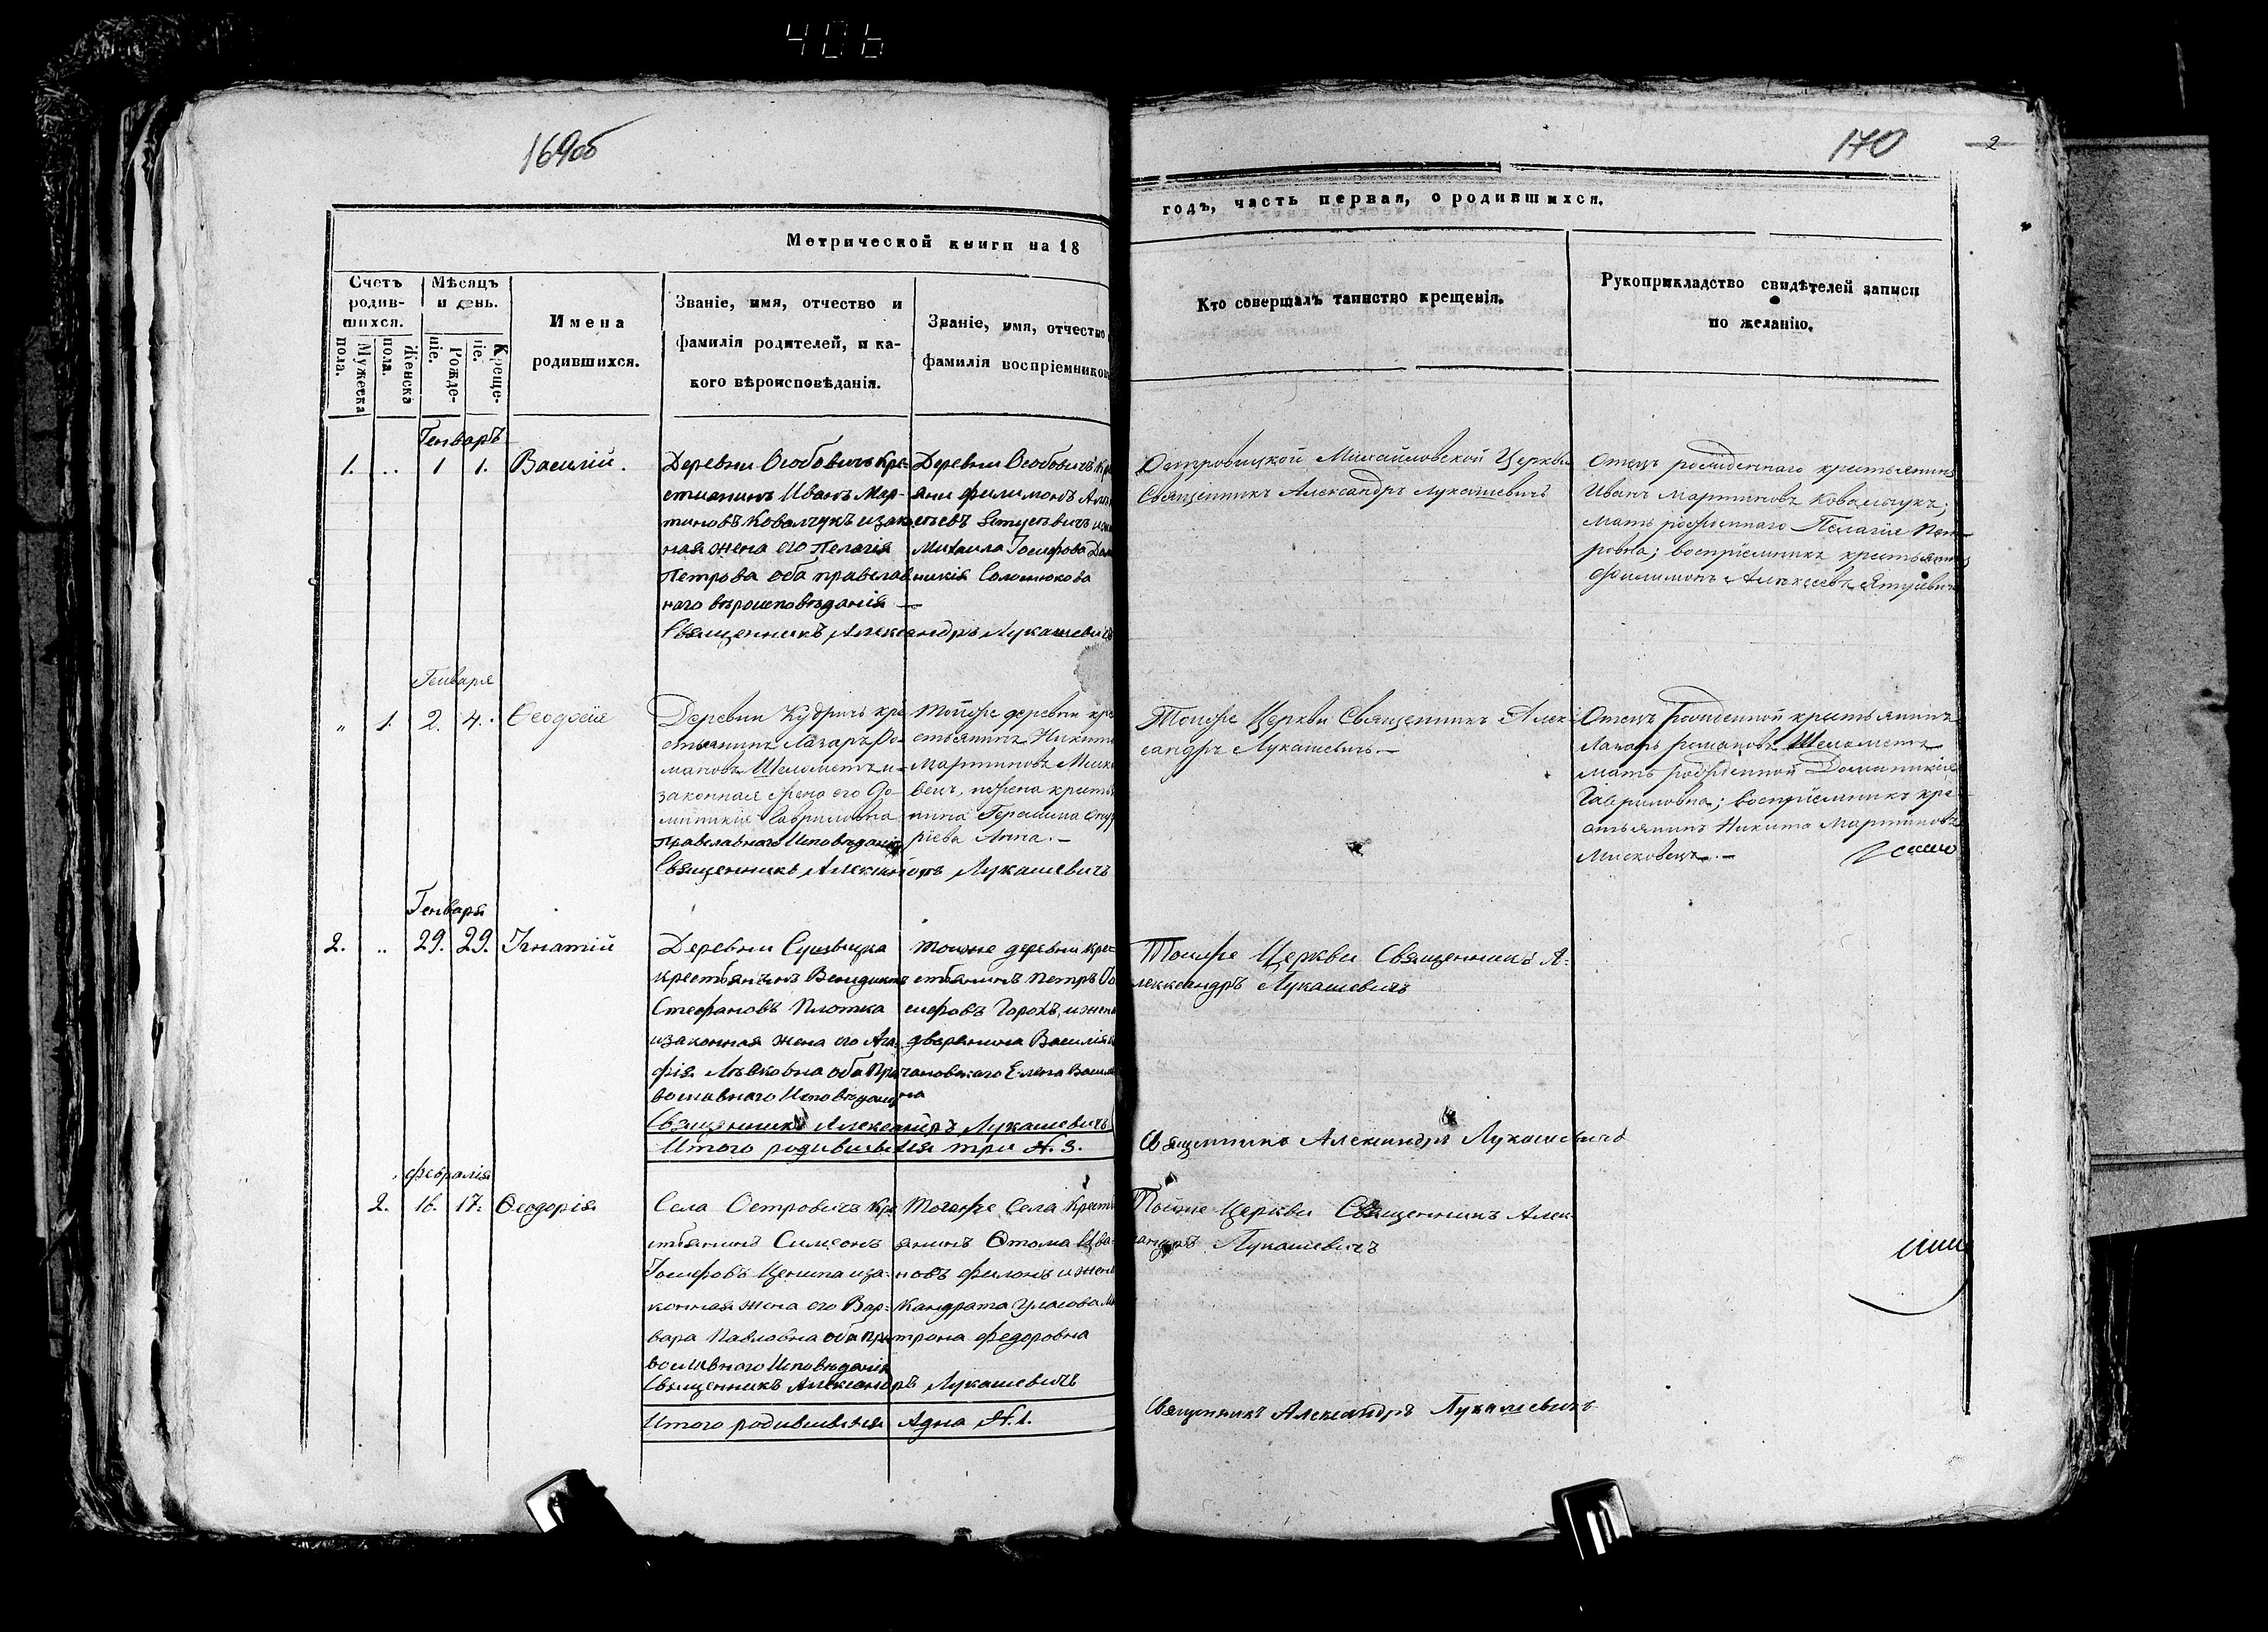 406
169об
170
2
Метрической книги на 18
годъ, часть первая, о родившихся.
Счетъ родив-шихся.
Мужеска пола.
Женска пола.
Мѣсяцъ и день.
Рожде-ніе.
Креще-ніе.
Имена
родившихся.
Званіе, имя, отчество и
фамилія родителей, и ка-
кого вѣроисповѣданія.
Званіе, имя, отчество
фамилія воспріемников
Кто совершалъ таинство крещенія.
Рукоприкладство свидѣтелей записи
по желанію.
Генварь
1. .. 1 1. Василій.
Деревни Особовичъ Кре-
стианинъ Иванъ Мар-
тиновъ Ковалчукъ изако
ная жена его Пелагія
Петрова оба правелав
наго вѣроисповѣданія —
Священникъ Александръ Лукашевичъ
Деревни Особовичъ
яни Филимонъ
Михаила Іосифова
никія Соломюкова
Островицкой Михайловской Церкви
Священникъ Александръ Лукашевичъ
Отецъ рожденнаго крестьянинъ
Иванъ Мартиновъ Ковальчукъ;
мать рожденнаго Пелагіе Пет-
ровна; воспріемникъ крестьянинъ
Филимонъ Алексеевъ Ятусевичъ
Генваря
" 1. 2. 4. Феодосія
Деревни Кудричъ кре
стьянинъ Лазаръ Ро-
мановъ Шелометъ и
законная жена его До-
миникія Гавриловна
православнаго Исповѣданія
Священникъ Александръ Лукашевичъ
Тойже деревни кре
стьянинъ Никита
Мартиновъ
вецъ, и жена крестья
нина Герасима
Анна. –
Тойже Церкви Священникъ Алек-
сандръ Лукашевичъ. –
Отецъ рожденной крестьянинъ
Лазарь Романовъ Шелометъ
мать рожденной Доминикія
Гавриловна; воспріемникъ кре-
стьянинъ Никита Мартиновъ
Мисковецъ. –
Генваря
2. .. 29. 29. Игнатій
Деревни Сушицка
крестьянинъ Венидиктъ
Стефановъ Плотка
изаконная жена его Ага-
фія Лявковна оба Пра
вославнаго Исповѣдан
Священникъ Александръ Лукашевичъ
Тоиже деревни кре-
стьянинъ Петръ
сифовъ Горохъ, и жена
дворянина Василія
чановскаго Елена Васил
на
Тоиже Церкви Священникъ А-
лександръ Лукашевичъ
Итого родившыхся три №. 3.
Священникъ Александръ Лукашевичъ
Февралія
2. 16. 17. Феодорія.
Села Островичъ Кре
стьянинъ Симеонъ
Іосифовъ Ценипа иза-
конная жена его Вар-
вара Павловна оба Пра
вославнаго Исповѣданія
Священникъ Александръ Лукашевичъ
Тогоже Села Крест
янинъ Фтома Ива-
новъ Филонъ и жена
Кандрата Уласова
трона Федоровна
Тойже Церкви Священникъ Алек-
сандръ Лукашевичъ
Итого родившыхся Адна №. 1.
Священникъ Александръ Лукашевичъ